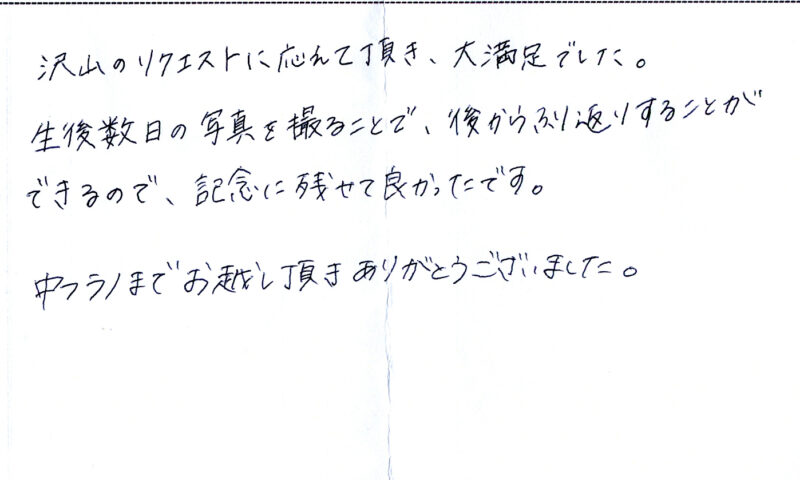 沢山のリクエストに応えて頂き、大満足でした。
生後数日の写真を撮ることで、後からふり返りすることが
できるので、記念に残せて良かったです。
中フラノまでお越し頂きありがとうございました。